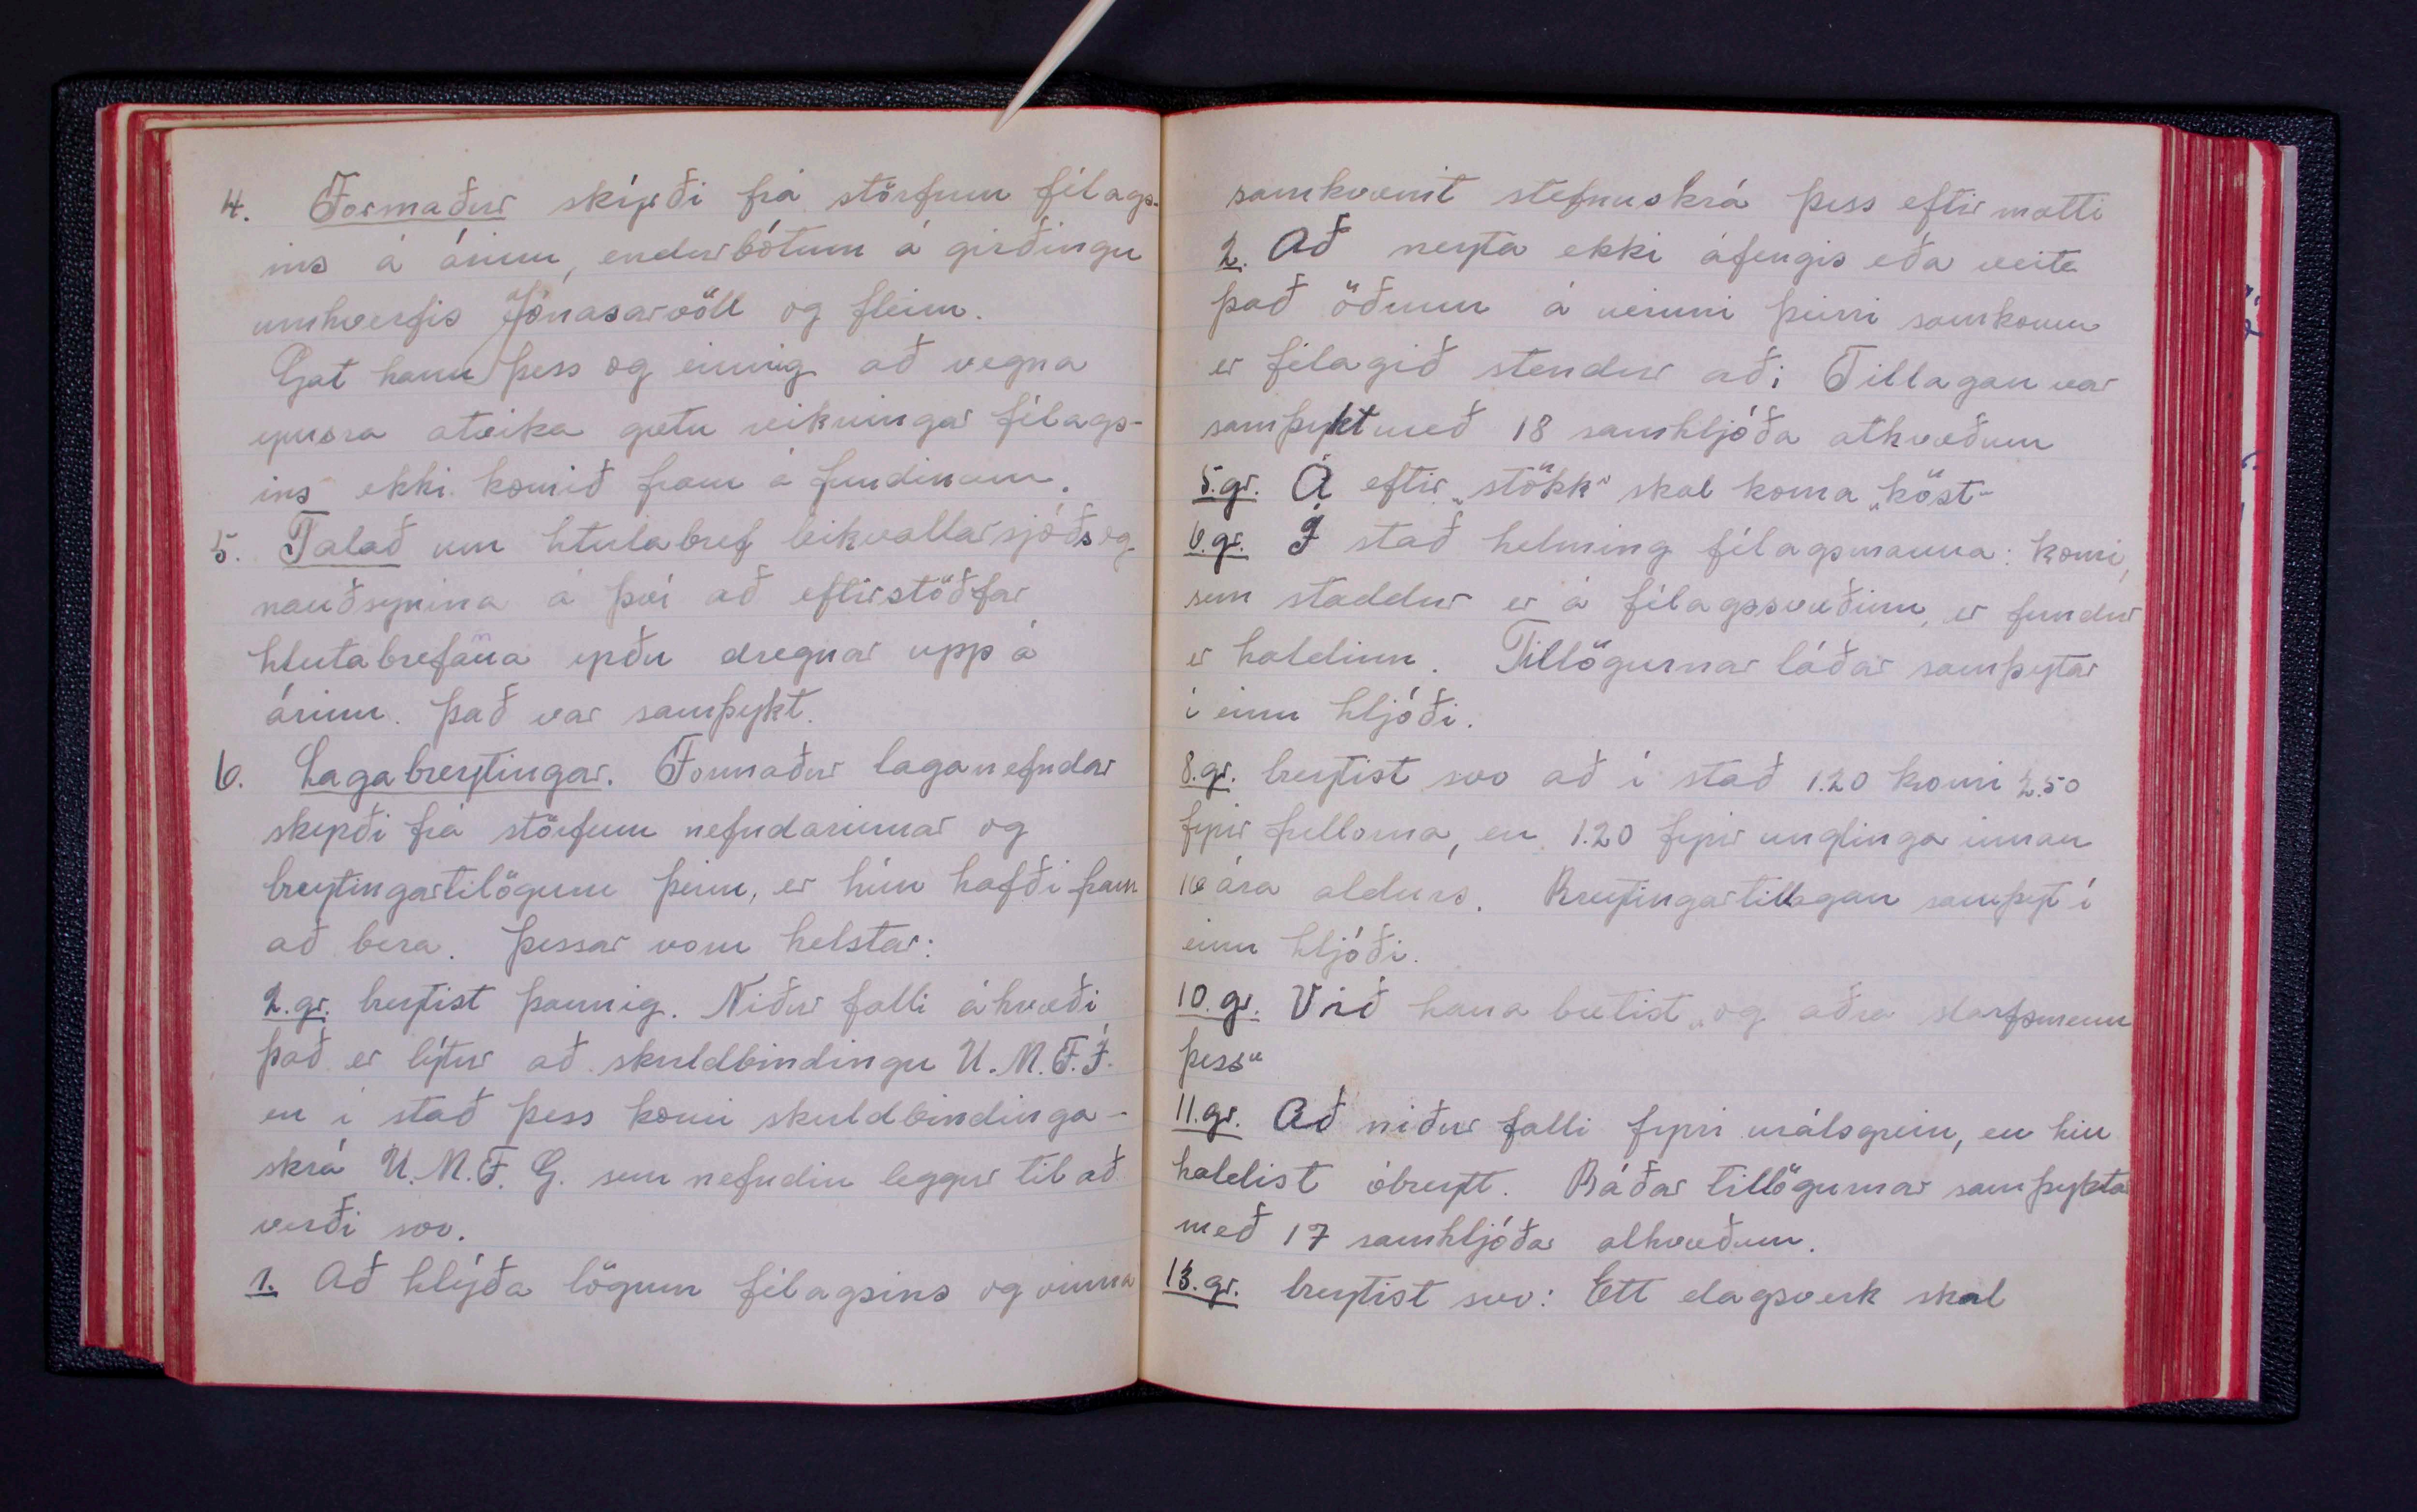 4. Formaður skýrði frá störfum félags-
ins á árinu, endurbótum á girðingu
umhverfis Jónasarvöll og fleiru.
Gat hann þess og einnig að vegna
ymsra atvika gætu reikningar félags-
ins ekki komið fram á fundinum.
5. Talað um hlutabref leikvallarsjóðs og
nauðsynina á því að eftirstöðfar
hlutabrefana yrðu dregnar upp á
árinu. Það var samþykt.
6. Lagabreytingar. Formaður laganefndar
skyrði frá störfum nefndarinnar og
breytingartilögum þeim, er hún hafði fram
að bera. Þessar voru helstar:
2.gr. breytist þannig. Niður falli ákvæði
það er lýtur að skuldbindingu U.M.F.Í.
en í stað þess komi skuldbindinga-
skrá U.M.F.G. sem nefndin leggur til að
verði svo.
1. Að hlýða lögum félagsins og vinna
samkvæmt stefnuskrá þess eftir mætti
2. Að neyta ekki áfengis eða veita
það öðrum á neinni þeirri samkomu
er félagið stendur að; Tillagan var
samþykt með 18 samhljóða atkvæðum
5.gr. Á eftir „stökk“ skal koma „köst-
6.gr. Í stað helming félagsmanna: komi,
sem staddur er á félagssvæðinu, er fundur
er haldinn. Tillögurnar báðar samþytar
í einu hljóði.
8.gr. breytist svo að í stað 1.20 komi 2.50
fyrir fullorna, en 1.20 fyrir unglinga innan
16 ára aldurs. Breytingartillagan samþyt í
einu hljóði.
10.gr. Við hana bætist „og aðra starfsmenn
þess“
11.gr. Að niður falli fyrri málsgrein, en hin
haldist óbreytt. Báðar tillögurnar samþykta
með 17 samhljóðar atkvæðum.
13.gr. breytist svo: Ett dagsverk skal